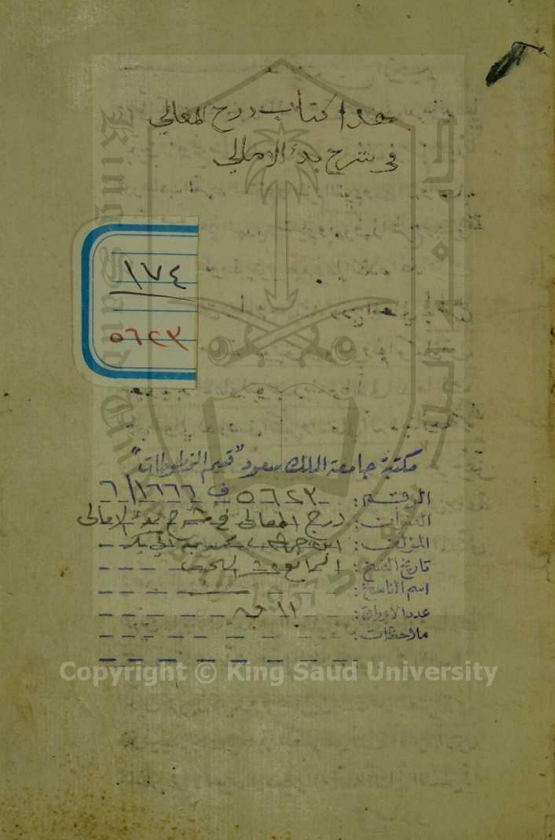 هذا كتاب درج المعالي
في شرح بدء الامالي
١٧٤
٥٦٢٣
مكتبة جامعة الملك سعود "قسم المخطوطات"
الرقم: ٥٦٢٣ ف ١٦٦٦/٦
العنوان: درج المعالي في شرح بدء الامالي
المؤلف: ابن جماعة، محمد بن ابي بكر
تاريخ النسخ: الرابع عشر الهجري
اسم الناسخ:
عدد الأوراق: ١١ ق
ملاحظات:
Copyright © King Saud University